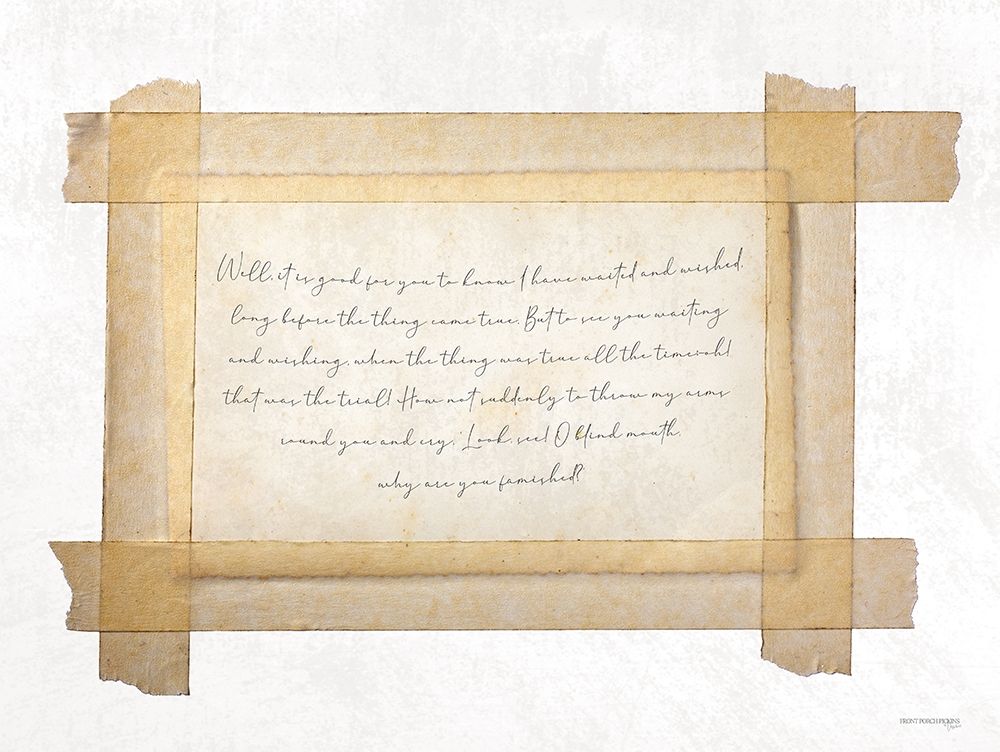 Well, it is good for you to know I have waited and wished,
long before the thing came true. But to see you waiting
and wishing, when the thing was true all the time:-oh!
that was the trial! How not suddenly to throw my arms
round you and cry, 'Look, see! O blind mouth,
why are you famished?'
FRONT PORCH PICKINS